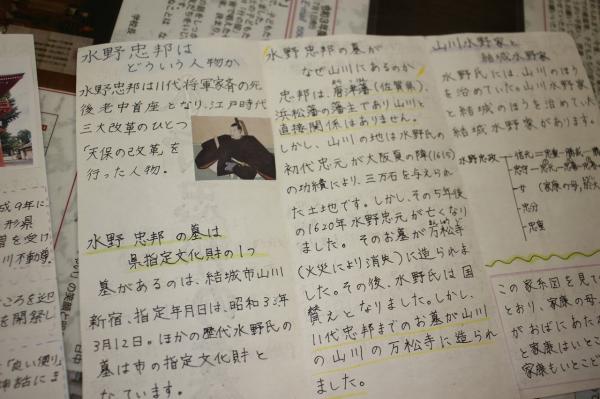 水野忠邦は
どういう人物か
水野忠邦は11代将軍家斉の死
後老中首座となり、江戸時代
三大改革のひとつ
「天保の改革」を
行った人物。
水野忠邦の墓は
県指定文化財の1つ
墓があるのは、結城市山川
新宿、指定年月日は、昭和33年
3月12日。ほかの歴代水野氏の
墓は市の指定文化財と
なています。
水野忠邦の墓が
なぜ山川にあるのか
忠邦は、唐津藩(佐賀県)、
浜松藩の藩主であり山川と
直接関係はありません。
しかし、山川の地は水野氏の
初代忠元が大阪夏の陣(1615)
の功績により、三万石を与えられ
た土地です。しかし、その5年後
の1620年水野忠元が亡くなり
ました。そのお墓が万松寺
(火災により消失)に造られま
した。その後、水野氏は国
替えとなりました。しかし、
11代忠邦までのお墓が山川
の山川の万松寺に造られ
ました。
山川水野家と
結城水野家
水野氏には、山川のほう
を治めていた山川水野家
と結城のほうを治めてい
た結城水野家があります。
水野忠政
忠守
女
忠分
忠重
この家系図を見て
とおり、家康の母
がおばにあた
と家康はいとこ
家康もいとこど
成9年に
形県
習を受け
川不動尊
ころを迎
を開祭し
「良い便り」